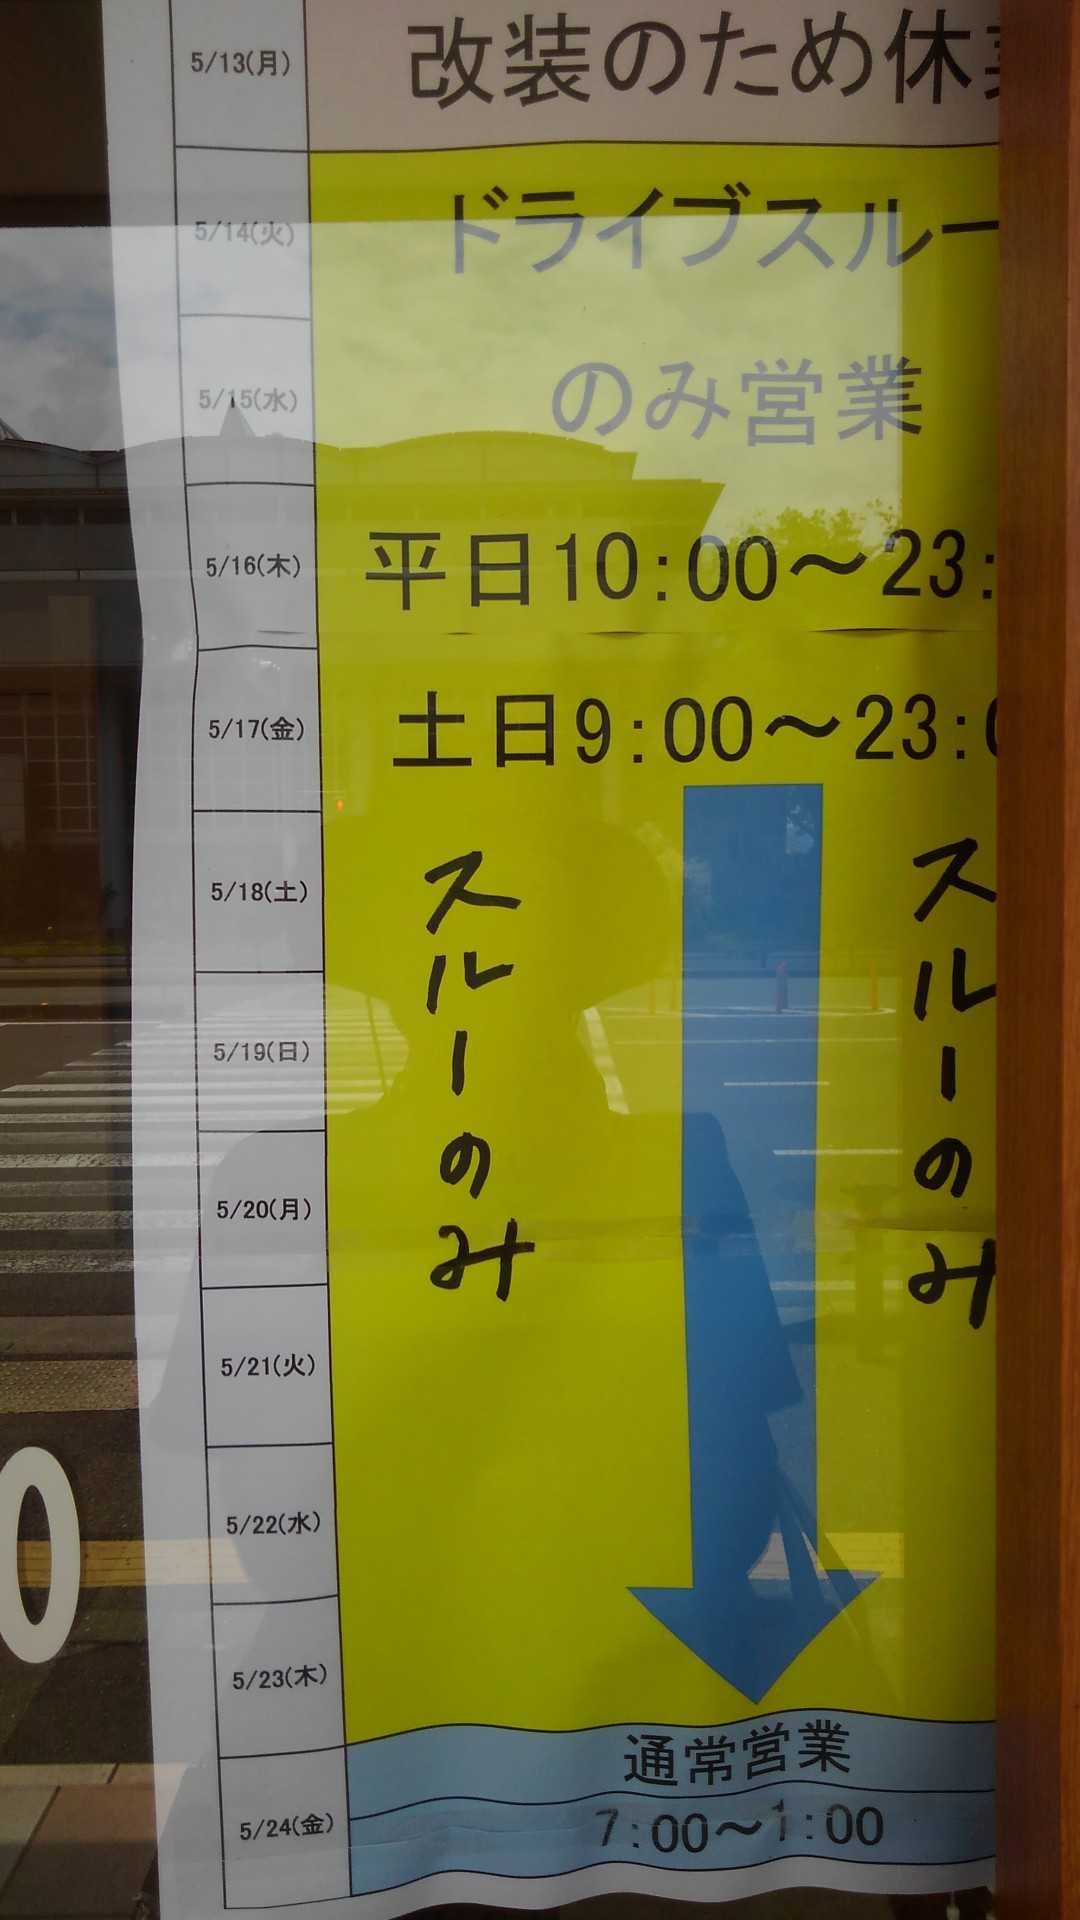 5/13(月)
改装のため休
5/14(火)
ドライブスルー
5/15(水)
のみ営業
5/16(木)
平日10:00～23:
5/17(金)
土日9:00～23:0
5/18(土)
スルーのみ
スルーのみ
5/19(日)
5/20(月)
5/21(火)
5/22(水)
5/23(木)
通常営業
5/24(金)
7:00～1:00
0